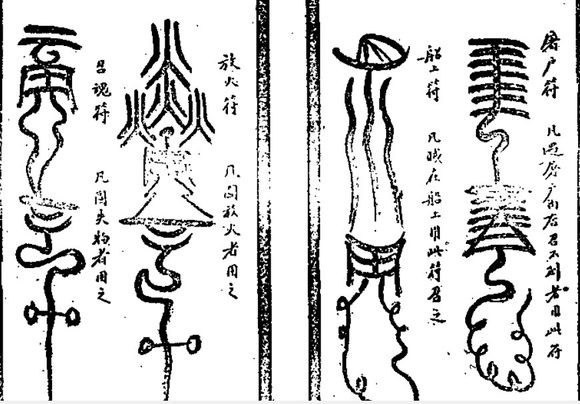 屠户符
凡遇屠户向左召不到者用此符
船上符
凡賊在船上用此符召之
放火符
凡図放火者用之
召魂符
凡図失物者用之